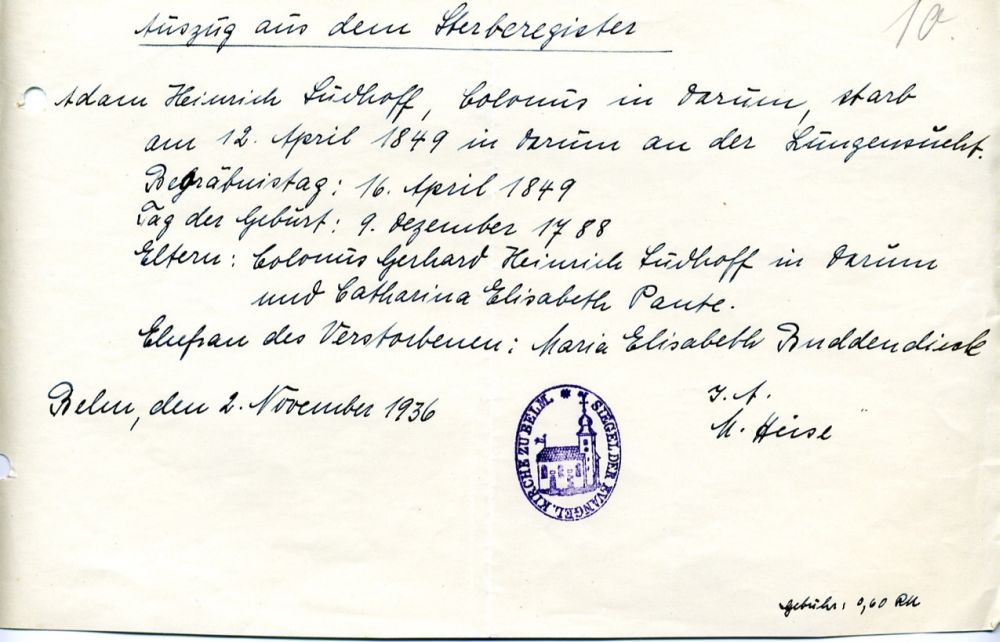 Auszug aus dem Sterberegister
10.
Adam Heinrich Südhoff, Colonus in Darum, starb
am 12. April 1849 in Darum an der Lungensucht.
Begräbnistag: 16. April 1849
Tag der Geburt: 9. Dezember 1788
Eltern: Colonus Gerhard Heinrich Südhoff in Darum
und Catharina Elisabeth Pante.
Ehefrau des Verstorbenen: Maria Elisabeth Buddendieck
Belm, den 2. November 1936
J. A.
M. Heise
SIEGEL DER EVANGEL. KIRCHE ZU BELM.
Gebühr: 0,60 RM